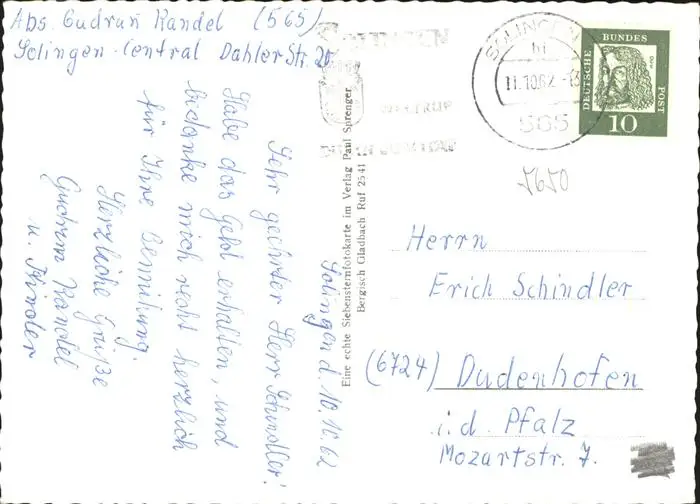 Abs. Gudrun Kandel (565)
Solingen-Central Dahler Str. 20
Solingen d. 10.10.62
Sehr geehrter Herr Schindler!
Habe das Geld erhalten, und
bedanke mich recht herzlich
für Ihre Bemühung.
Herzliche Grüße
Gudrun Kandel
u. Kinder
Eine echte Siebensternfotokarte im Verlag Paul Sprenger
Bergisch Gladbach Ruf 2541
SOLINGEN
11.10.62
565
DEUTSCHE BUNDESPOST
10
5650
Herrn
Erich Schindler
(6724) Dudenhofen
i. d. Pfalz
Mozartstr. 7.